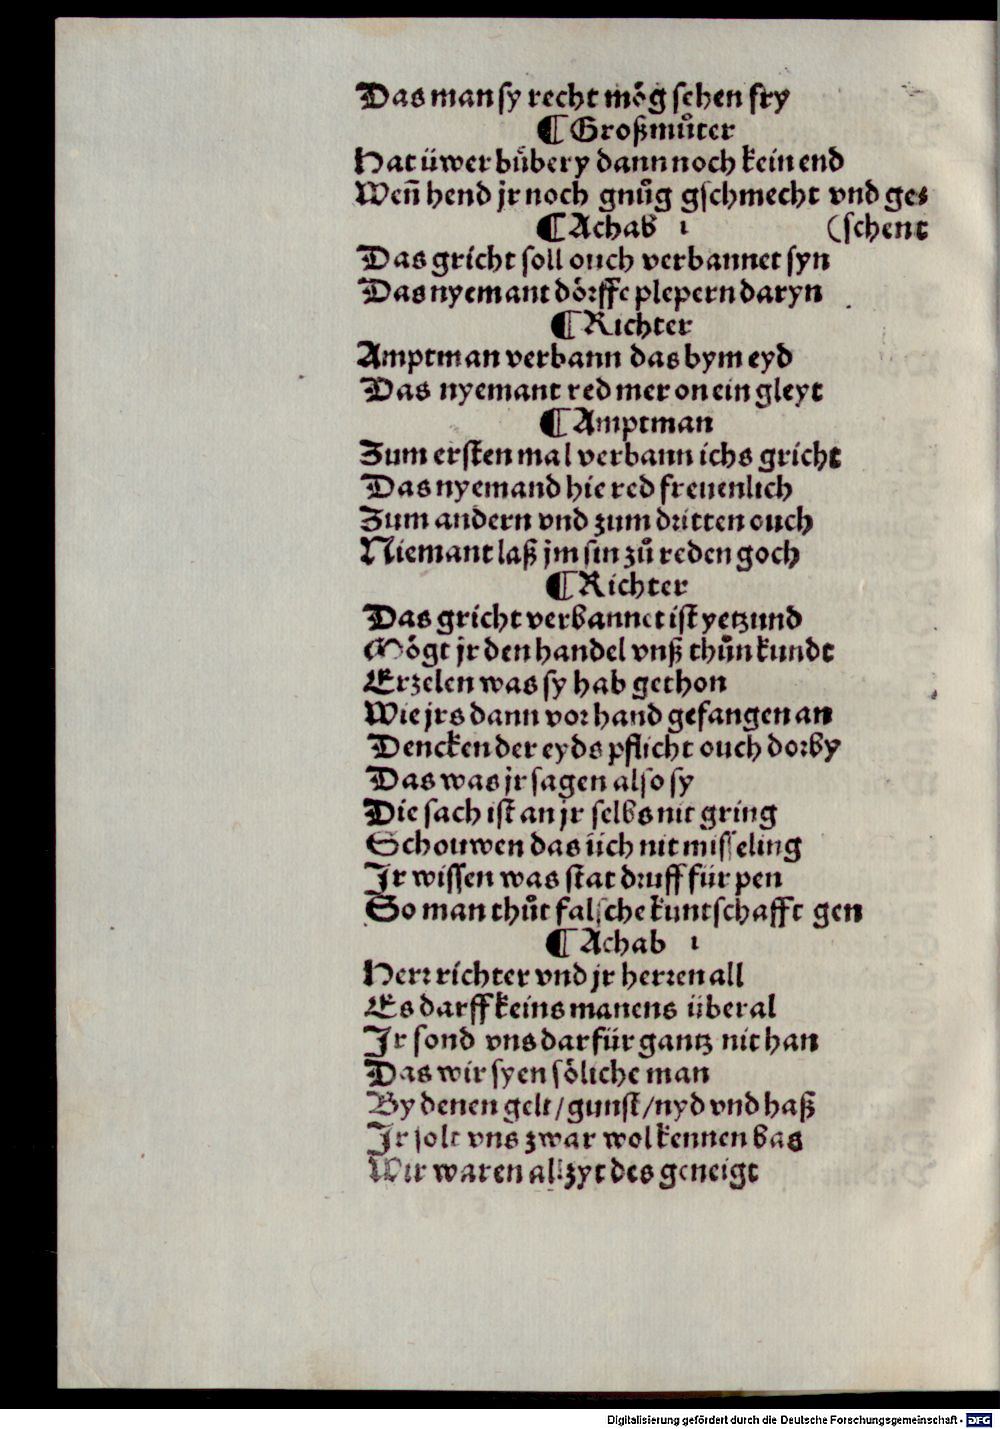 Das man sy recht mög sehen fry
¶ Großmůter
Hat üwer bůbery dann noch kein end
Weñ hend jr noch gnůg gschmecht vnd ges
¶ Achab 1 (schent
Das gricht soll ouch verbannet syn
Das nyemant dörffe plepern daryn
¶ Richter
Amptman verbann das bym eyd
Das nyemant red mer on ein gleyt
¶ Amptman
Zum ersten mal verbann ichs gricht
Das nyemand hie red freuenlich
Zum andern vnd zum dritten ouch
Niemant laß jm sin zů reden goch
¶ Richter
Das gricht verbannet ist yetzund
Mögt jr den handel vnß thůn kundt
Erzelen was sy hab gethon
Wie jrs dann vor hand gefangen an
Dencken der eyds pflicht ouch dorby
Das was jr sagen also sy
Die sach ist an jr selbs nit gring
Schouwen das üch nit misseling
Jr wissen was stat druff für pen
So man thůt falsche kuntschafft gen
¶ Achab 1
Herr richter vnd jr herren all
Es darff keins manens überal
Jr sond vns darfür gantz nit han
Das wir syen söliche man
By denen gelt/gunst/nyd vnd haß
Jr solt vns zwar wol kennen bas
Wir waren allzyt des geneigt
Digitalisierung gefördert durch die Deutsche Forschungsgemeinschaft - DFG